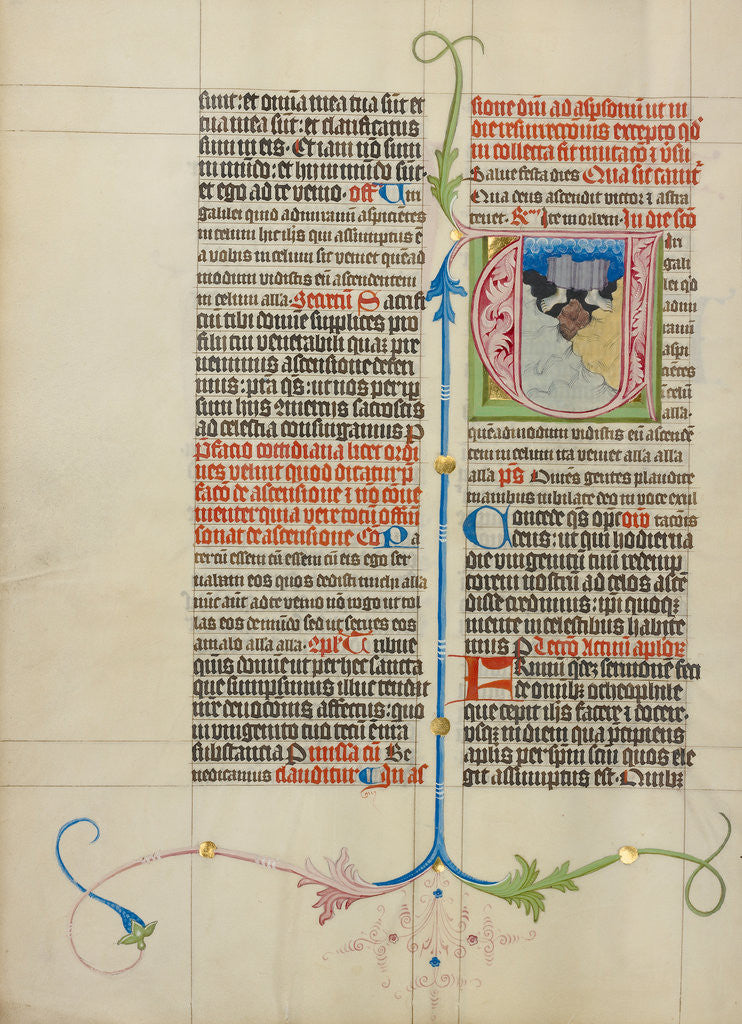 sunt: et om̄ia mea tua sūt et
tua mea sūt: et clarificatus
sum in eis. Et iam nō sum
in mūdo: et hii in mūdo sūt.
et ego ad te venio. off Viri
galilei quid admiramini aspiciētes
in celum hic ihs qui assumptus ē
a vobis in celum sic veniet quēad
modum vidistis eū ascendentem
in celum alla. Secretū Sacrifi
ciū tibi domine supplices pro
filii tui venerabili quā pre
venimus ascensione deferi
mus: p̄ta q̄s: ut nos per ip̄
sum hiis 9merciis sacrosctis
ad celestia consurgamus P
Prefacio cottidiana licet ordi
nes velint quod dicatur p̄
facō de ascensione ⁊ nō cōve
nienter quia vere totū offm̄
sonat de ascensione Co Pa
ter cū essem cū essem cū eis ego ser
uabam eos quos dedisti michi alla
nūc aūt ad te venio nō rogo ut tol
las eos de mūdo sed ut serves eos
a malo alla alla. 9ple Tribue
quis domine ut per hec sancta
que sumpsimus illuc tendat
nr̄e devocionis affectus: quo
in unigenito tuo tecū ē nr̄a
substancia P missa cū Be
nedicamus clauditur In as
sione dn̄i ad aspsorium ut in
die resurreccionis excepto qd'
in collecta fit mutacō ⁊ v̄su
Salve festa dies Qua sic canit'
Qua deus ascendit victor ⁊ astra
tenet. Itē in ordem In die sctō
Viri
gali
lei qd
admi
ramī
aspi
ciētes
ī celū
alla.
quēadmodum vidistis eū ascendē
tem in celum ita veniet alla alla
alla ps Om̄es gentes plaudite
manibus iubilate deo in voce exul
Concede q̄s opc̄ orō tacōnis
deus: ut qui hodierna
die unigenitū tuū redemp
torem nostrū ad celos ascē
disse credimus: ip̄i quoqꝫ
mente in celestibus habite
mus P Lectō Actuū aplorꝫ
Primū qdeꝫ sermone feci
de om̄ibꝫ o theophile
que cepit ihs facere ⁊ docere.
usqꝫ in diem qua p̄cipiens
aplis per sp̄m scm̄ quos ele
git assumptus est. Quibꝫ